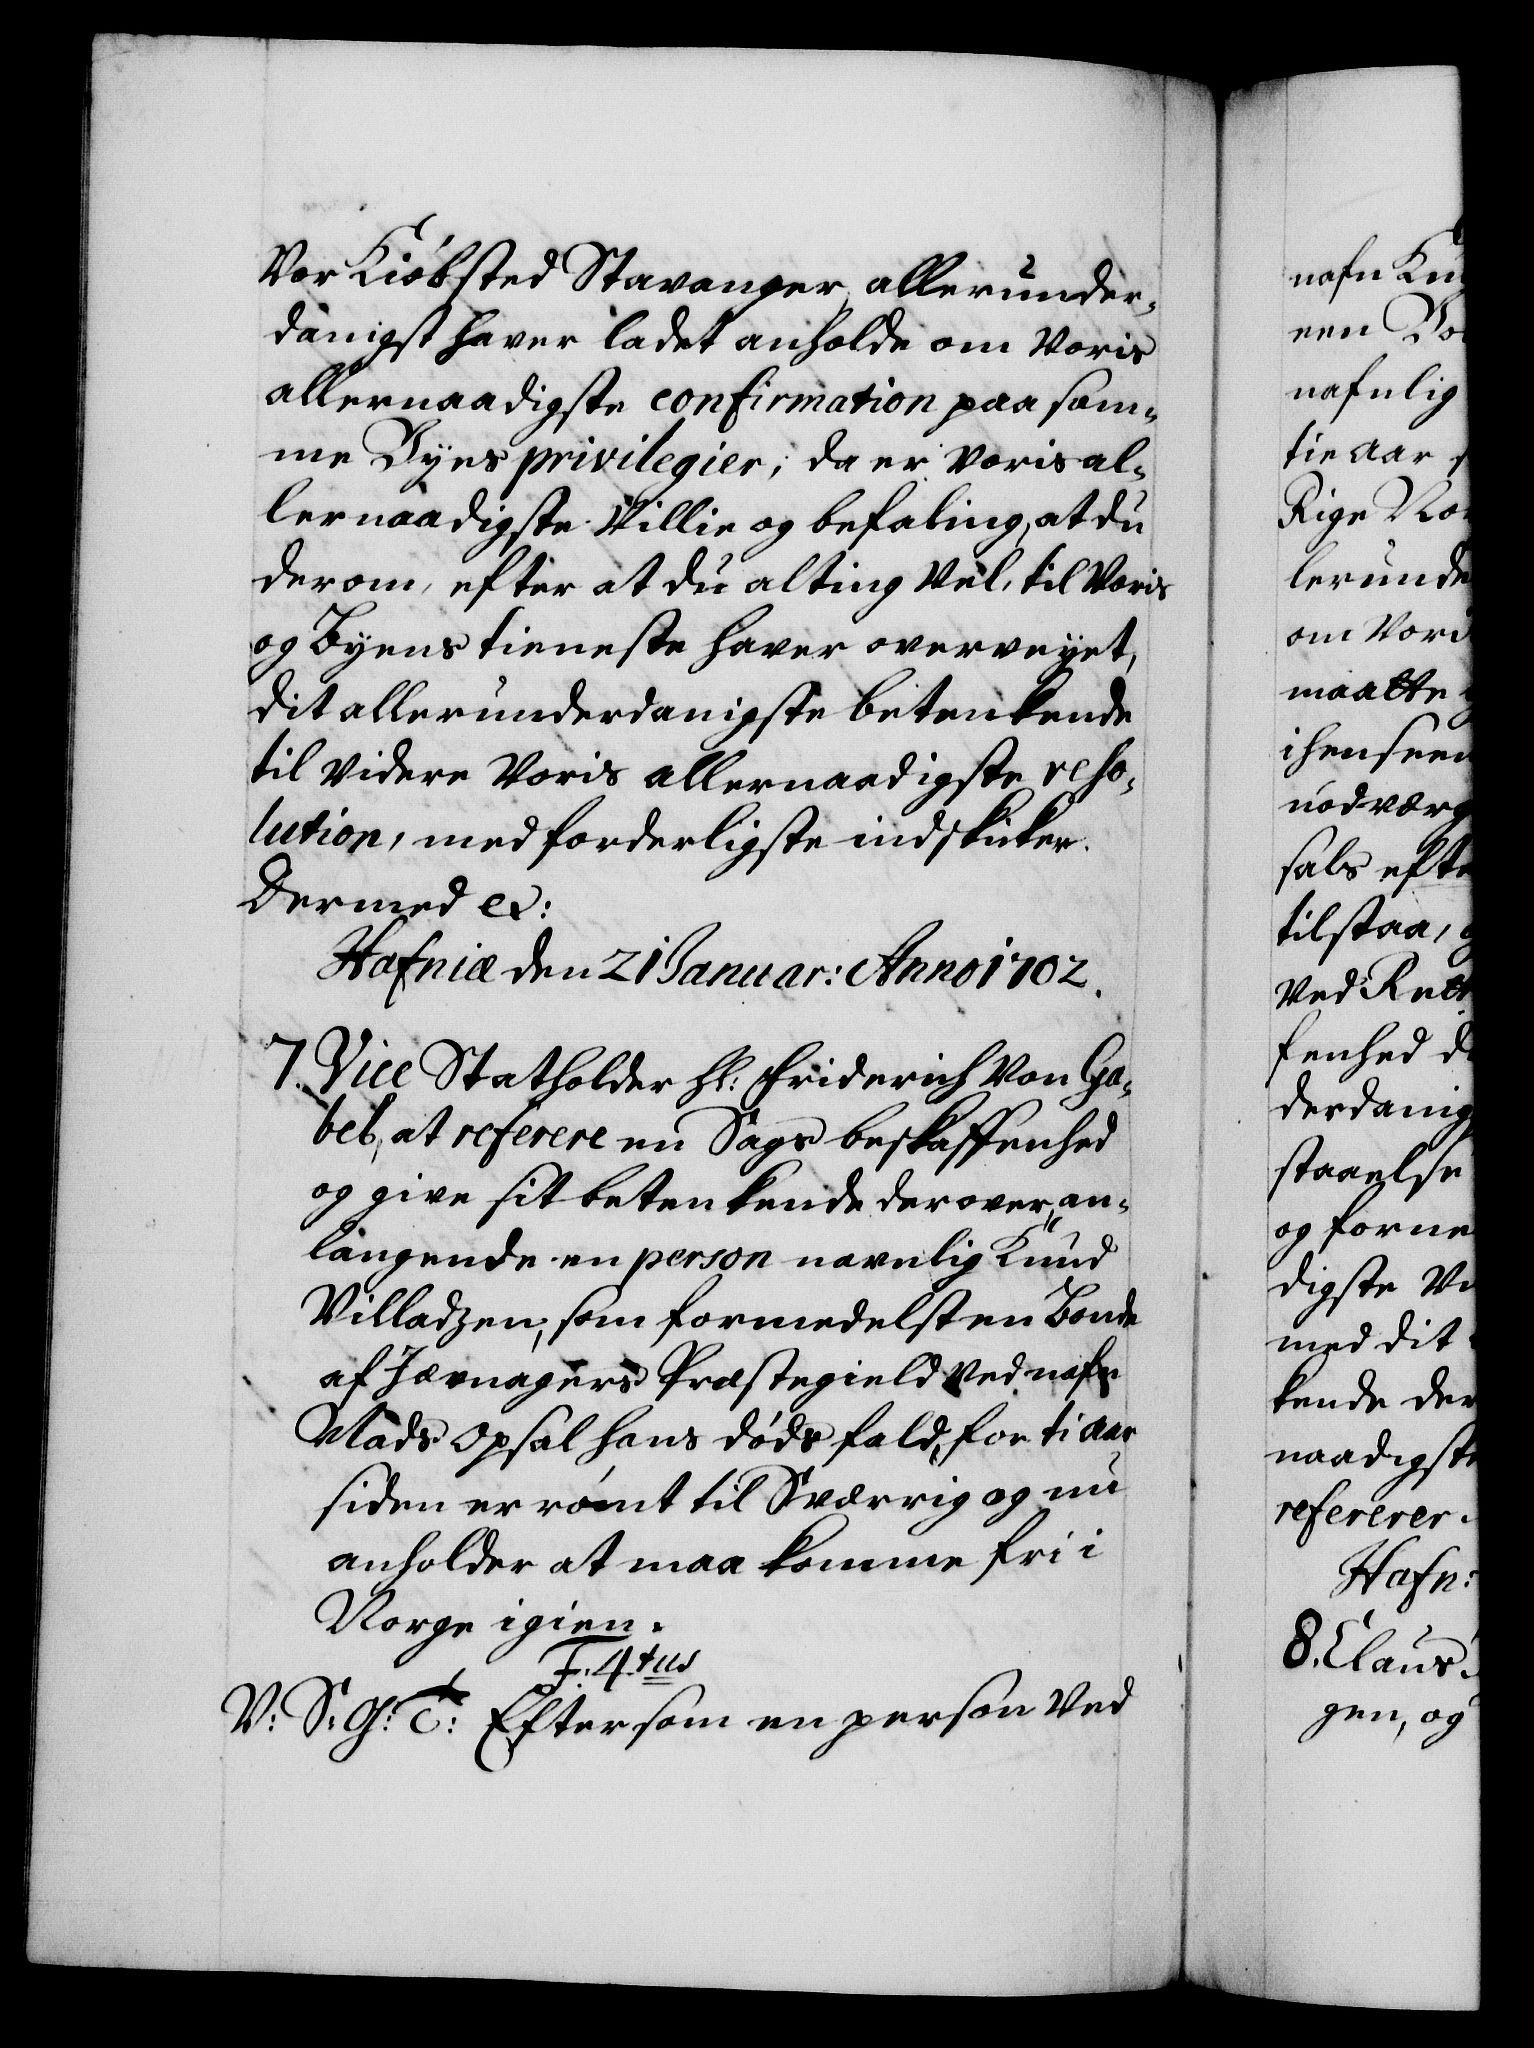 Vor Kiöbsted Stavanger allerunder-
danigst haver ladet anholde om Voris
allernaadigste confirmation paa sam-
me Byes privilegier; da er Voris al-
lernaadigste Villie og befaling, at du
derom, efter at du alting Vel, til Voris
og Byens tieneste haver overveyet,
dit allerunderdanigste betenkende
til videre Voris allernaadigste reso-
lution, med forderligste indskicker.
Dermed etc:
Hafniæ den 21 Januar: Anno 1702.
7. Vice Statholder Hl: Friderich Von Ga-
bel, at referere en Sags beskaffenhed
og give sit betenkende derover, an-
langende en person navnlig Knud
Villadzen, som formedelst en Bonde
af Jævnagers Præstegield ved nafn
Mads Opsal hans döds fald, for ti aar
siden er römt til Sværrig og nu
anholder at maa komme fri i
Norge igien.
F: 4tus
V: S: G: T: Eftersom en person Ved
nafn Knu
een Bo
nafnlig
tie aar
Rige Nor
lerunde
om Vor
maatte
i henseen
nodværg
sals efte
tilstaa,
Ved Rett
fenhed d
derdanig
staaelse
og forne
digste Vi
med dit
kende der
naadigste
refererer
Hafn:
8. Claus
gen, og